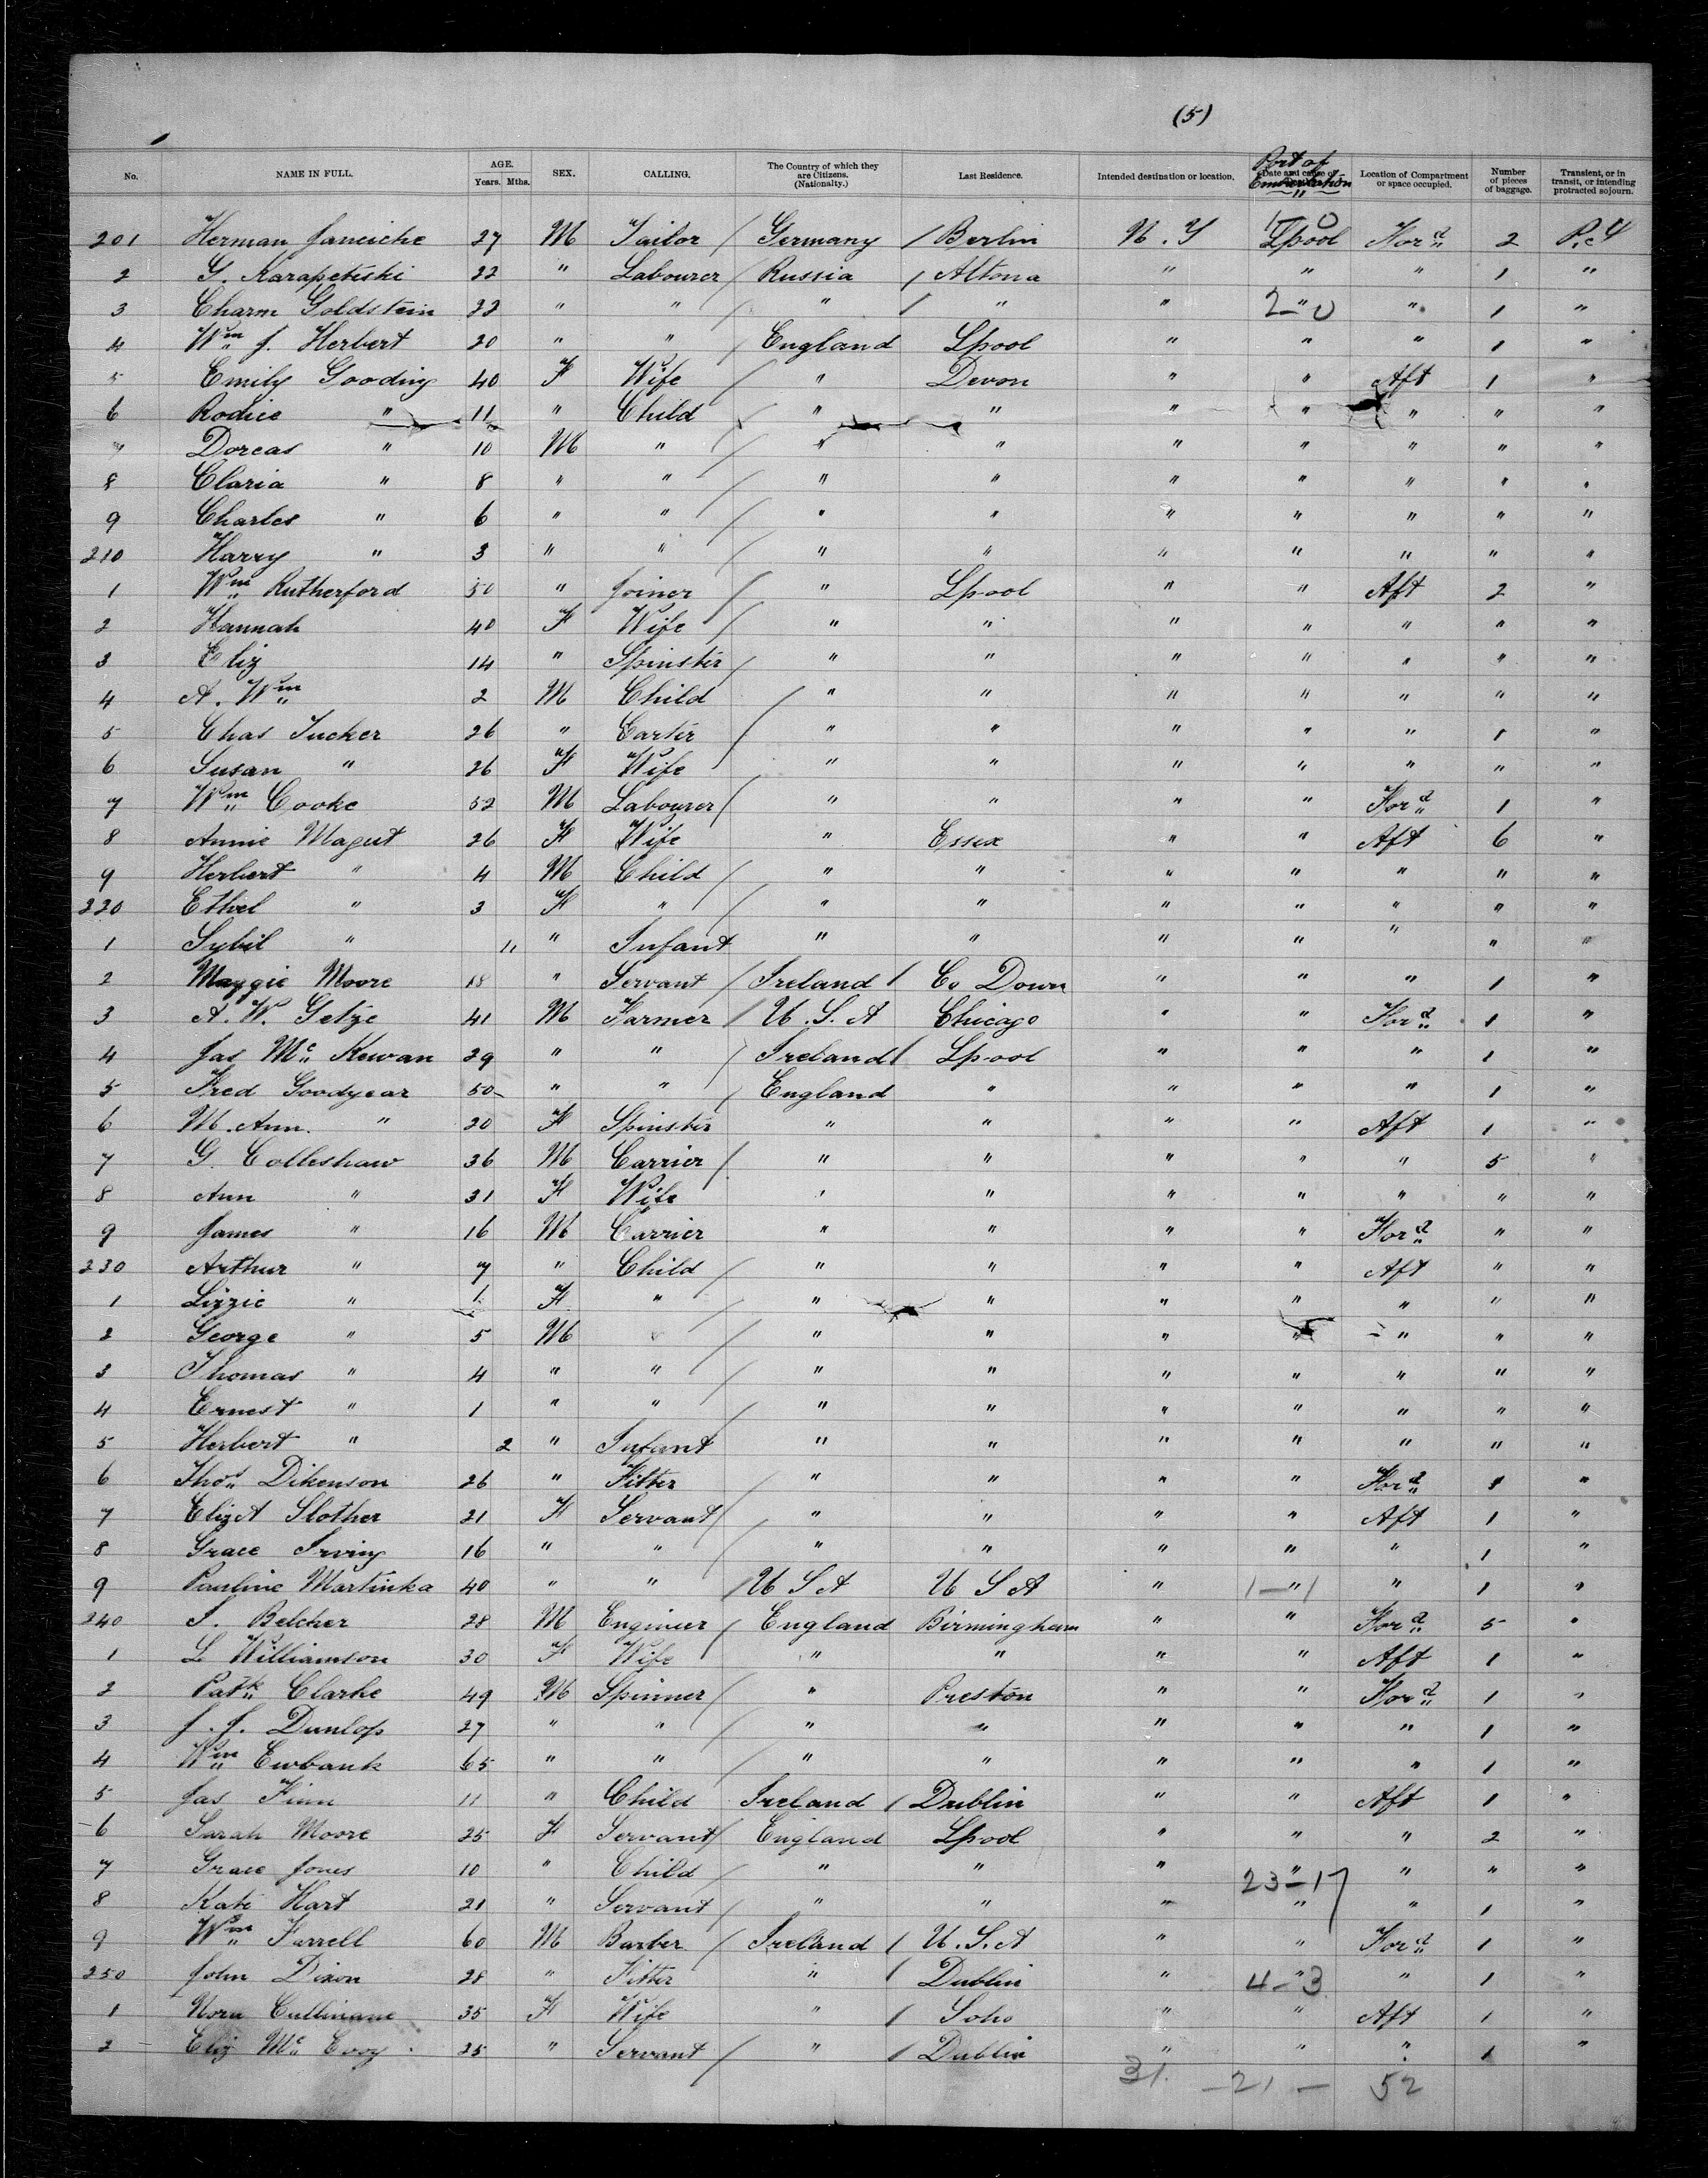 (5)
No. NAME IN FULL. AGE. Years. Mths. SEX. CALLING. The Country of which they are Citizens. (Nationalty.) Last Residence. Intended destination or location. Port of Embarkation Location of Compartment or space occupied. Number of pieces of baggage. Transient, or in transit, or intending protracted sojourn.
1 — 0
201 Herman Janeiche 27 M Tailor / Germany / Berlin N.Y Lpool Ford 2
2 G. Karapetiski 22 " Labourer / Russia / Altona " " " 1 "
3 Charm Goldstein 22 " " / " / " " 2 " 0 " 1 "
4 Wm J. Herbert 20 " " / England Lpool " " " 1 "
5 Emily Gooding 40 F Wife / " Devon " " Aft 1 "
6 Rodice " 11 " Child / " " " " " " "
7 Dorcas " 10 M " / " " " " " " "
8 Claria " 8 " " / " " " " " " "
9 Charles " 6 " " / " " " " " " "
210 Harry " 3 " " / " " " " " " "
1 Wm Rutherford 50 " Joiner / " Lpool " " Aft 2 "
2 Hannah 40 F Wife / " " " " " " "
3 Eliz 14 " Spinster / " " " " " " "
4 A. Wm 2 M Child / " " " " " " "
5 Chas Tucker 26 " Carter / " " " " " 1 "
6 Susan " 26 F Wife " " " " " " "
7 Wm Cooke 52 M Labourer / " " " " Ford 1 "
8 Annie Magut 26 F Wife " Essex " " Aft 6 "
9 Herbert " 4 M Child / " " " " " " "
220 Ethel " 3 F " / " " " " " " "
1 Sybil " 11 " Infant " " " " " " "
2 Maggie Moore 18 " Servant / Ireland / Co Down " " " 1 "
3 A. W. Getze 41 M Farmer / U.S.A Chicago " " Ford 1 "
4 Jas Mc Kewan 29 " " / Ireland / Lpool " " " 1 "
5 Fred Goodyear 50 " " England " " " " 1 "
6 M. Ann. " 20 F Spinster " " " " Aft 1 "
7 G. Colleshaw 36 M Carrier / " " " " " 5 "
8 Ann " 31 F Wife " " " " " " "
9 James " 16 M Carrier " " " " Ford " "
230 Arthur " 7 " Child / " " " " Aft " "
1 Lizzie " 1 F " / " " " " " " "
2 George " 5 M " / " " " " " " "
3 Thomas " 4 " " / " " " " " " "
4 Ernest " 1 " " / " " " " " " "
5 Herbert " 2 " Infant " " " " " " "
6 Thos Dikenson 26 " Fitter / " " " " Ford 1 "
7 Eliz A Slother 21 F Servant / " " " " Aft 1 "
8 Grace Irving 16 " " / " " " " " 1 "
9 Pauline Martinka 40 " " / U S A U S A " 1 — " 1 " 1 "
240 S. Belcher 28 M Engineer / England Birmingham " " Ford 5 "
1 L Williamson 30 F Wife " " " " Aft 1 "
2 Patk Clarke 49 M Spinner / " Preston " " Ford 1 "
3 J. J. Dunlop 27 " " / " " " " " 1 "
4 Wm Ewbank 65 " " / " " " " " 1 "
5 Jas Finn 11 " Child Ireland / Dublin " " Aft 1 "
6 Sarah Moore 25 F Servant / England Lpool " " " 2 "
7 Grace Jones 10 " Child / " " " " " " "
23 — 17
8 Kate Hart 21 " Servant / " " " " " 1 "
9 Wm Farrell 60 M Barber / Ireland / U.S.A " " Ford 1 "
250 John Dixon 28 " Fitter " / Dublin " 4 — " 3 " 1 "
1 Nora Cullinane 35 F Wife " / Soho " " Aft 1 "
2 Eliz Mc Evoy 25 " Servant / " / Dublin " " " 1 "
31. — 21 — 52